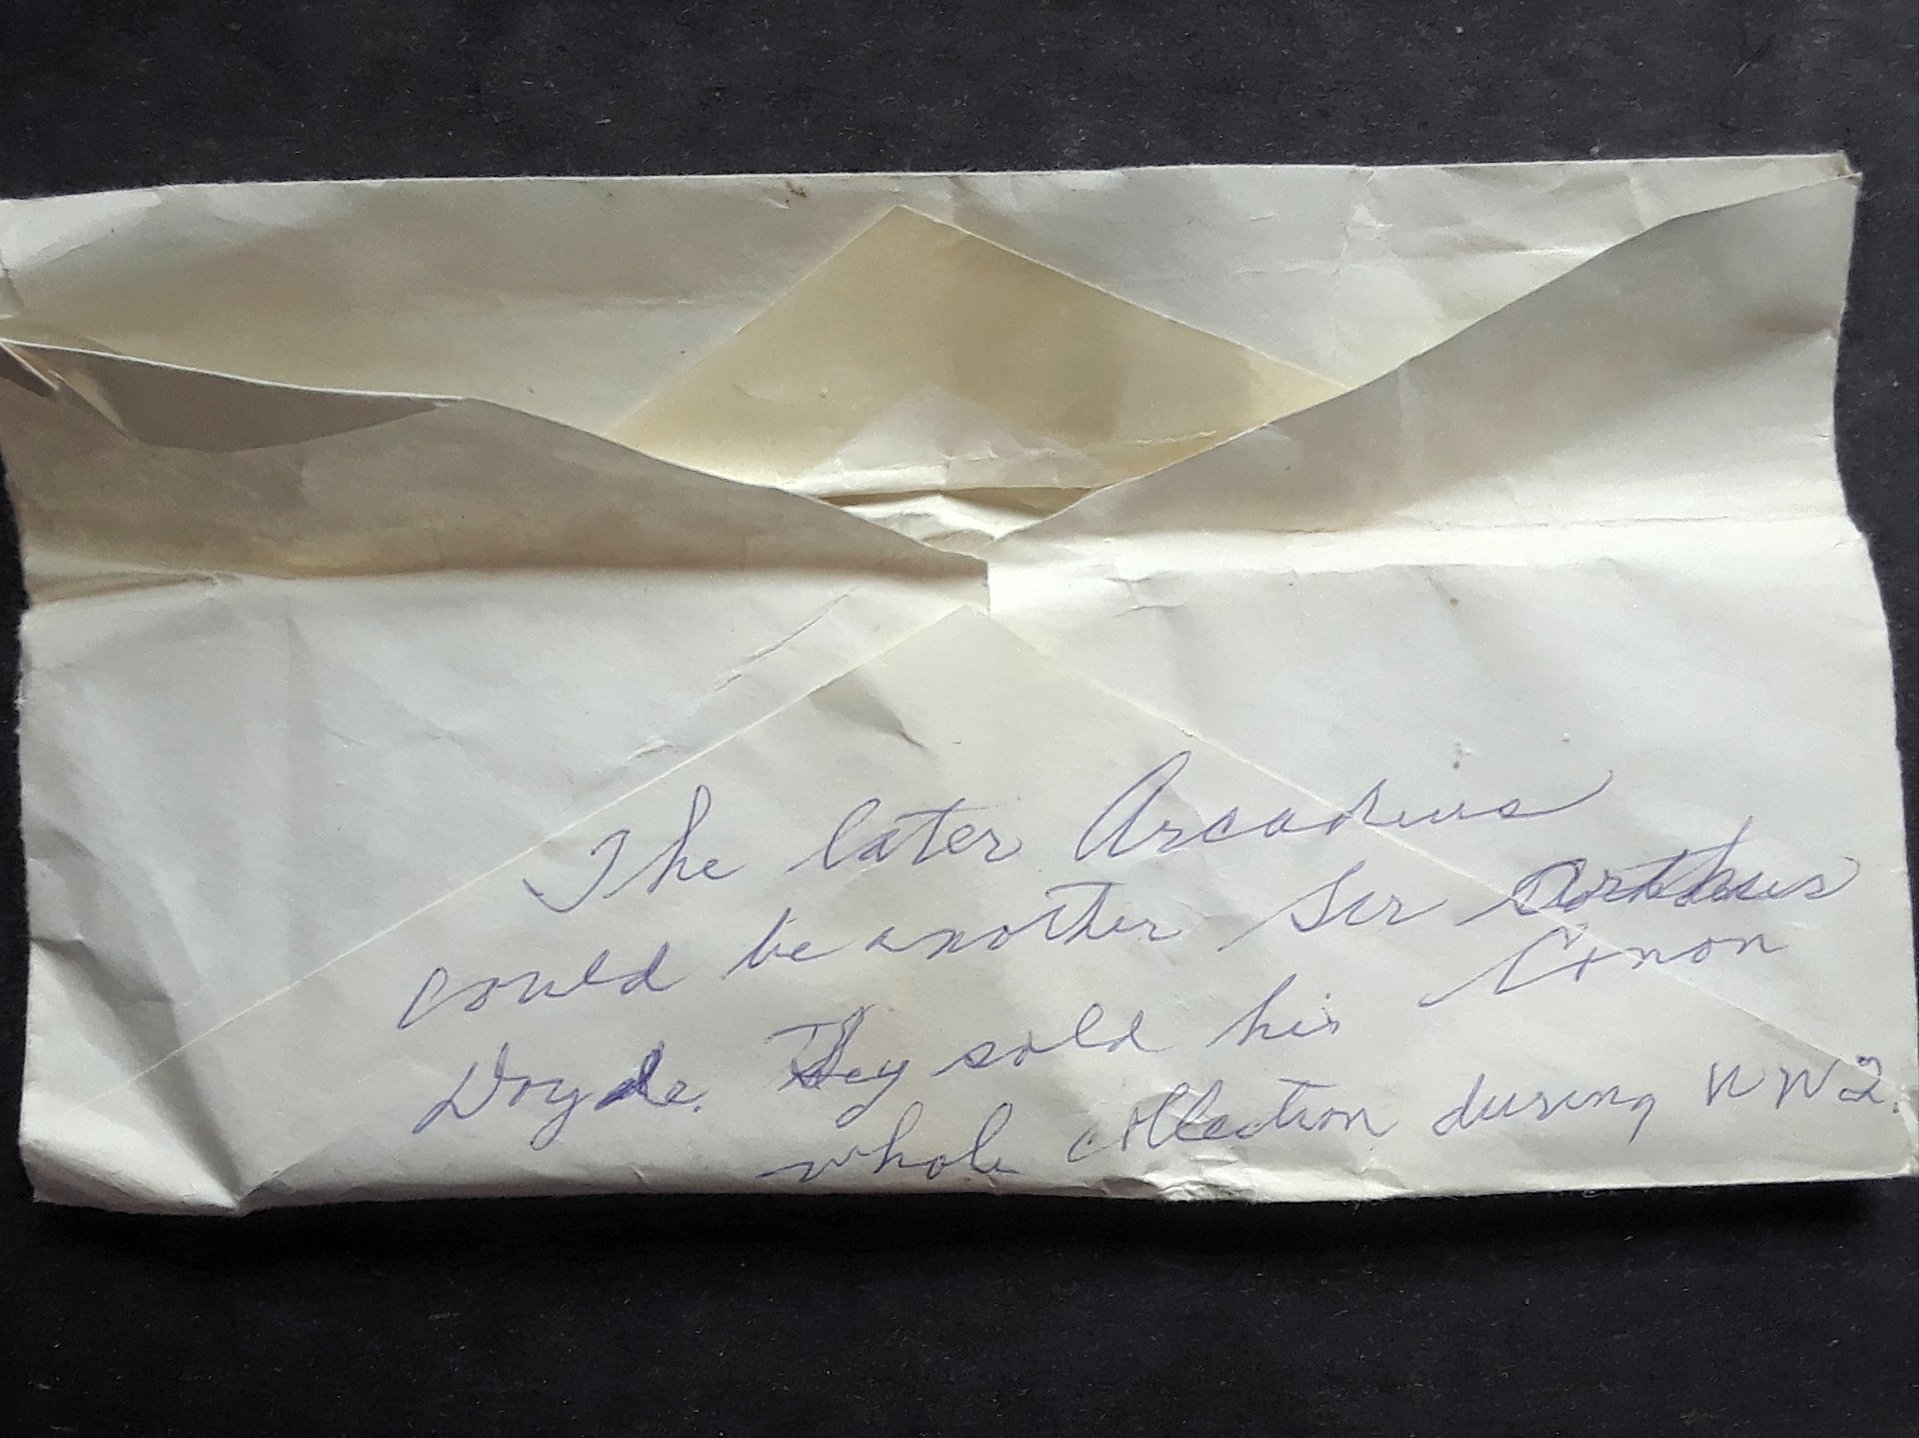 The later Arcadius
could be another Sir Arthur
Conon
Doyle. They sold his
whole collection during WW2.